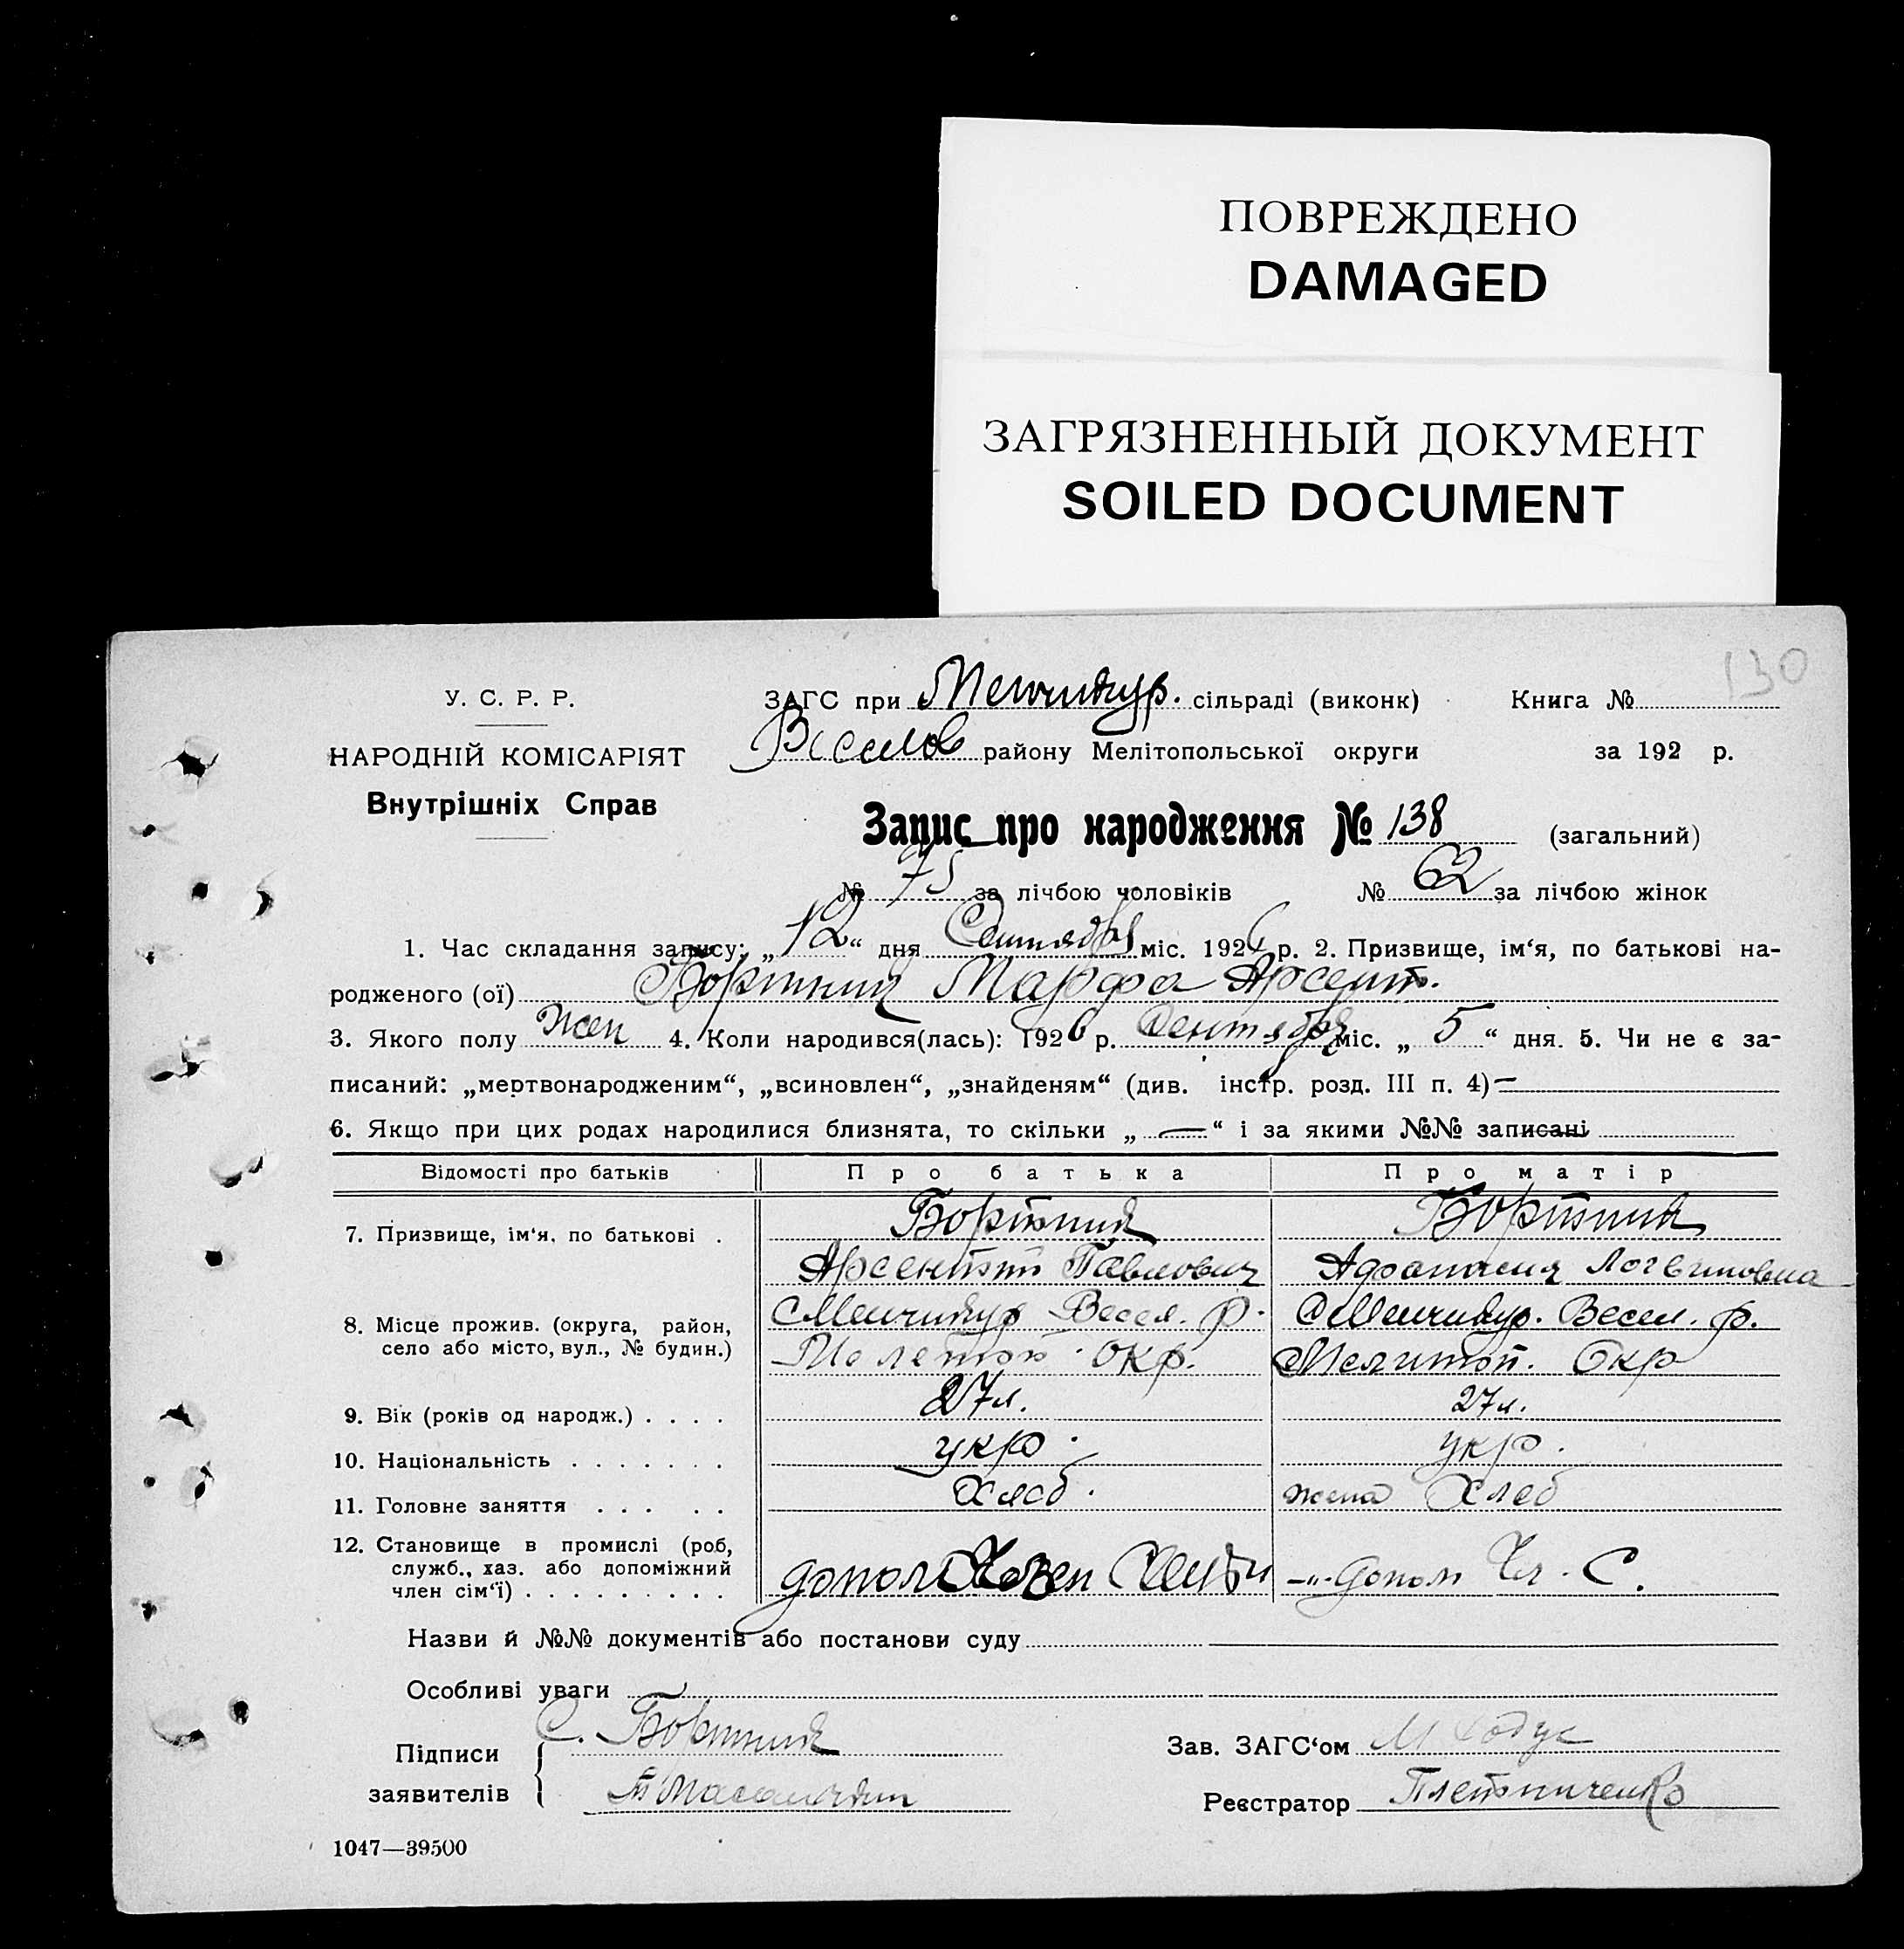 ПОВРЕЖДЕНО
DAMAGED
ЗАГРЯЗНЕННЫЙ ДОКУМЕНТ
SOILED DOCUMENT
130
У. С. Р. Р.
НАРОДНІЙ КОМІСАРІЯТ
Внутрішніх Справ
ЗАГС при Менчикур. сільраді (виконк) Книга №
Веселов району Мелітопольської округи за 192 р.
Запис про народження № 138 (загальний)
№ 75 за лічбою чоловіків № 62 за лічбою жінок
1. Час складання запису: „12“ дня Сентября міс. 1926 р. 2. Призвище, ім‘я, по батькові на-
родженого (ої) Бортник Марфа Арсент.
3. Якого полу жен 4. Коли народився(лась): 1926 р. Сентября міс. „ 5 “ дня. 5. Чи не є за-
писаний: „мертвонародженим“, „всиновлен“, „знайденям“ (див. інстр. розд. III п. 4) —
6. Якщо при цих родах народилися близнята, то скільки „ — “ і за якими №№ записані
Відомості про батьків Про батька Про матір
7. Призвище, ім‘я, по батькові . Бортник Бортник
Арсентий Павлович Афанасия Логвиновна
8. Місце прожив. (округа, район, село або місто, вул., № будин.) С Менчикур Весел. р. С Менчикур. Весел. р.
Мелетоп. Окр. Мелитоп. Окр
9. Вік (років од народж.) . . . . 27 л. 27 л.
10. Національність . . . . . . . укр. укр.
11. Головне заняття . . . . . Хлеб. жена Хлеб
12. Становище в промислі (роб,
служб., хаз. або допоміжний
член сім‘ї) . . . . . . . . . допом -"- допом Чл. С.
Назви й №№ документів або постанови суду
Особливі уваги
Підписи заявителів { С. Бортник
Зав. ЗАГС‘ом М Ходус
Реєстратор Плетниченко
1047—39500